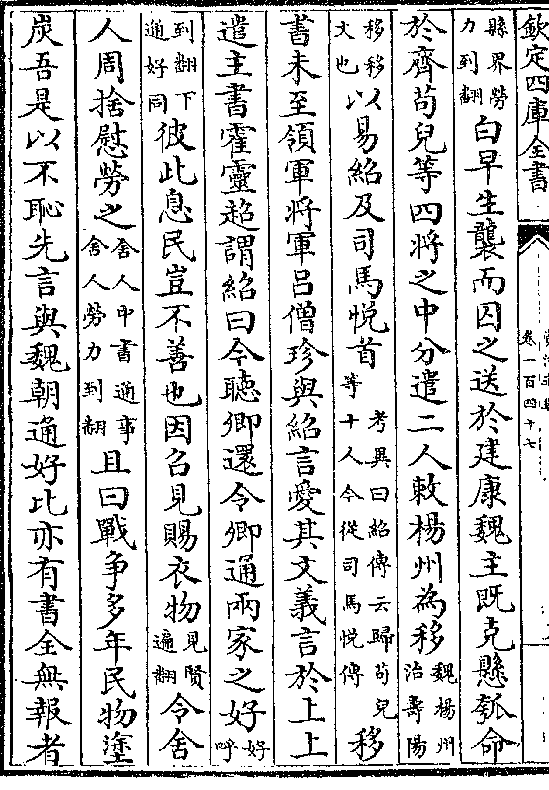 欽定四庫全書
卷一百四十七
縣界勞力到翻白早生襲而囚之送於建康魏主既克懸瓠命
於齊茍兒等四將之中分遣二人敕楊州為移魏楊州治壽陽
移移文也以易紹及司馬悅首考異曰紹傳云歸茍兒等十人今從司馬悅傳移
書未至領軍將軍吕僧珍與紹言愛其文義言於上上
遣主書霍靈超謂紹曰今聽卿還令卿通兩家之好好呼
到翻下通好同彼此息民豈不善也因召見賜衣物見賢遍翻令舍
人周捨慰勞之舍人中書通事舍人勞力到翻且曰戰爭多年民物塗
炭吾是以不恥先言與魏朝通好比亦有書全無報者